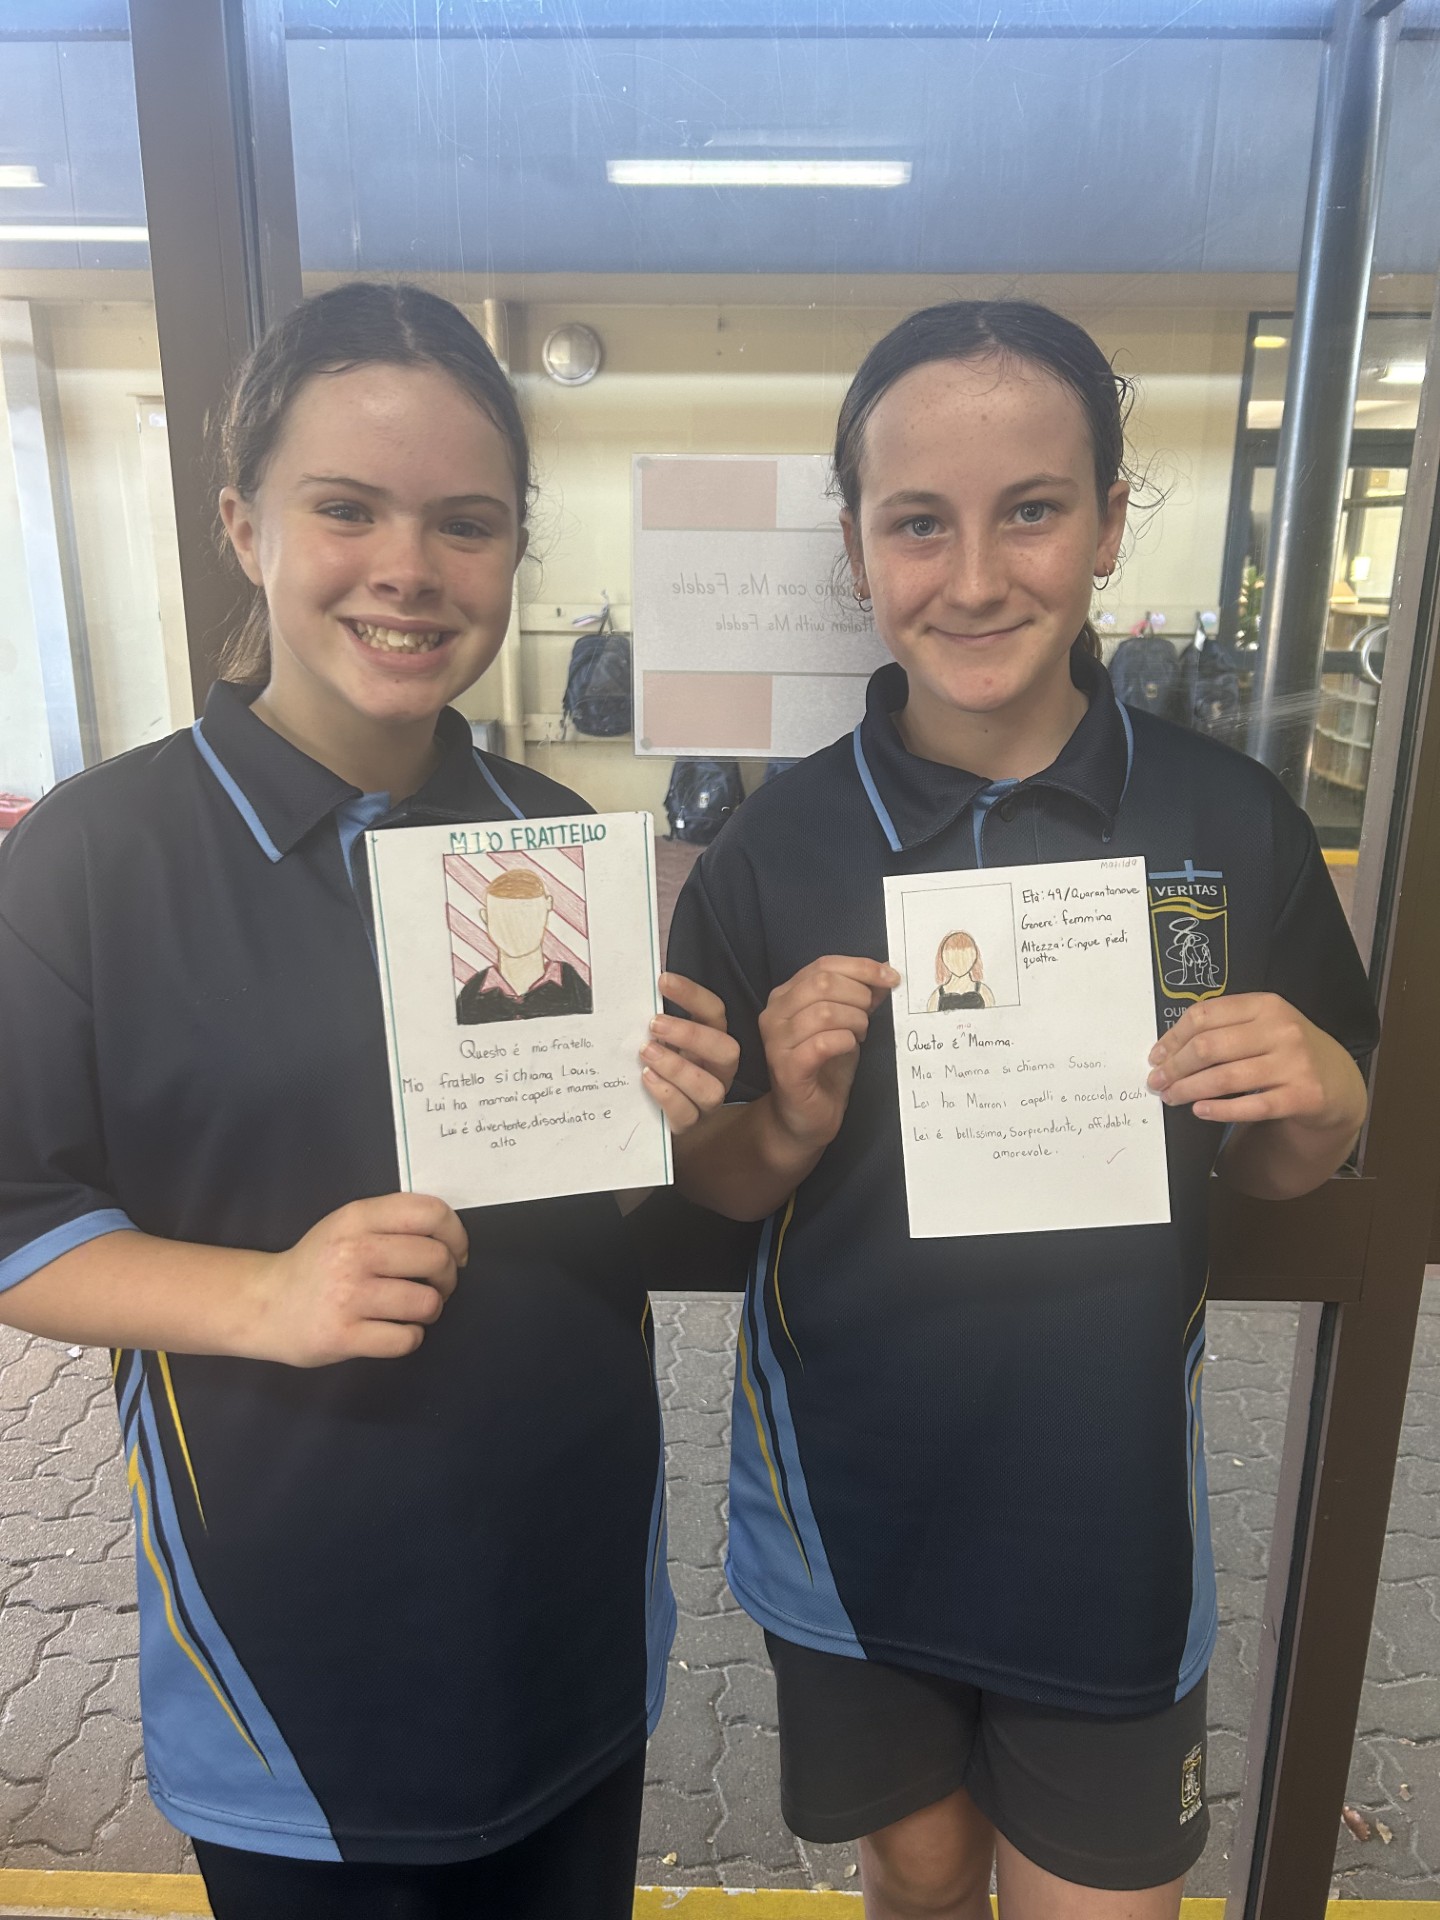 con Ms. Fedele
Italian with Ms. Fedele
MIO FRATTELLO
Questo é mio fratello.
Mio fratello si chiama Louis.
Lui ha marroni capelli e marroni occhi.
Lui é divertente, disordinato e
alto
Matilda
Età: 49/Quarantanove
Genere: femmina
Altezza: Cinque piedi
quattro
mia
Questo é ^ Mamma.
Mia Mamma si chiama Susan.
Lei ha Marroni capelli e nocciola Occhi
Lei é bellissima, Sorprendente, affidabile e
amorevole.
VERITAS
OUR